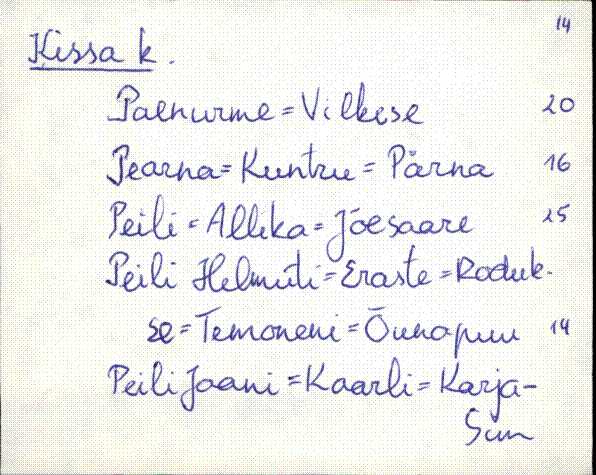 14
Kissa k.
Paenurme = Vilkese 20
Pearna = Kuntru = Pärna 16
Peili = Allika = Jõesaare 25
Peili Helmuti = Eraste = Roduk-
se = Temoneni = Õunapuu 14
Peili Jaani = Kaarli = Karja-